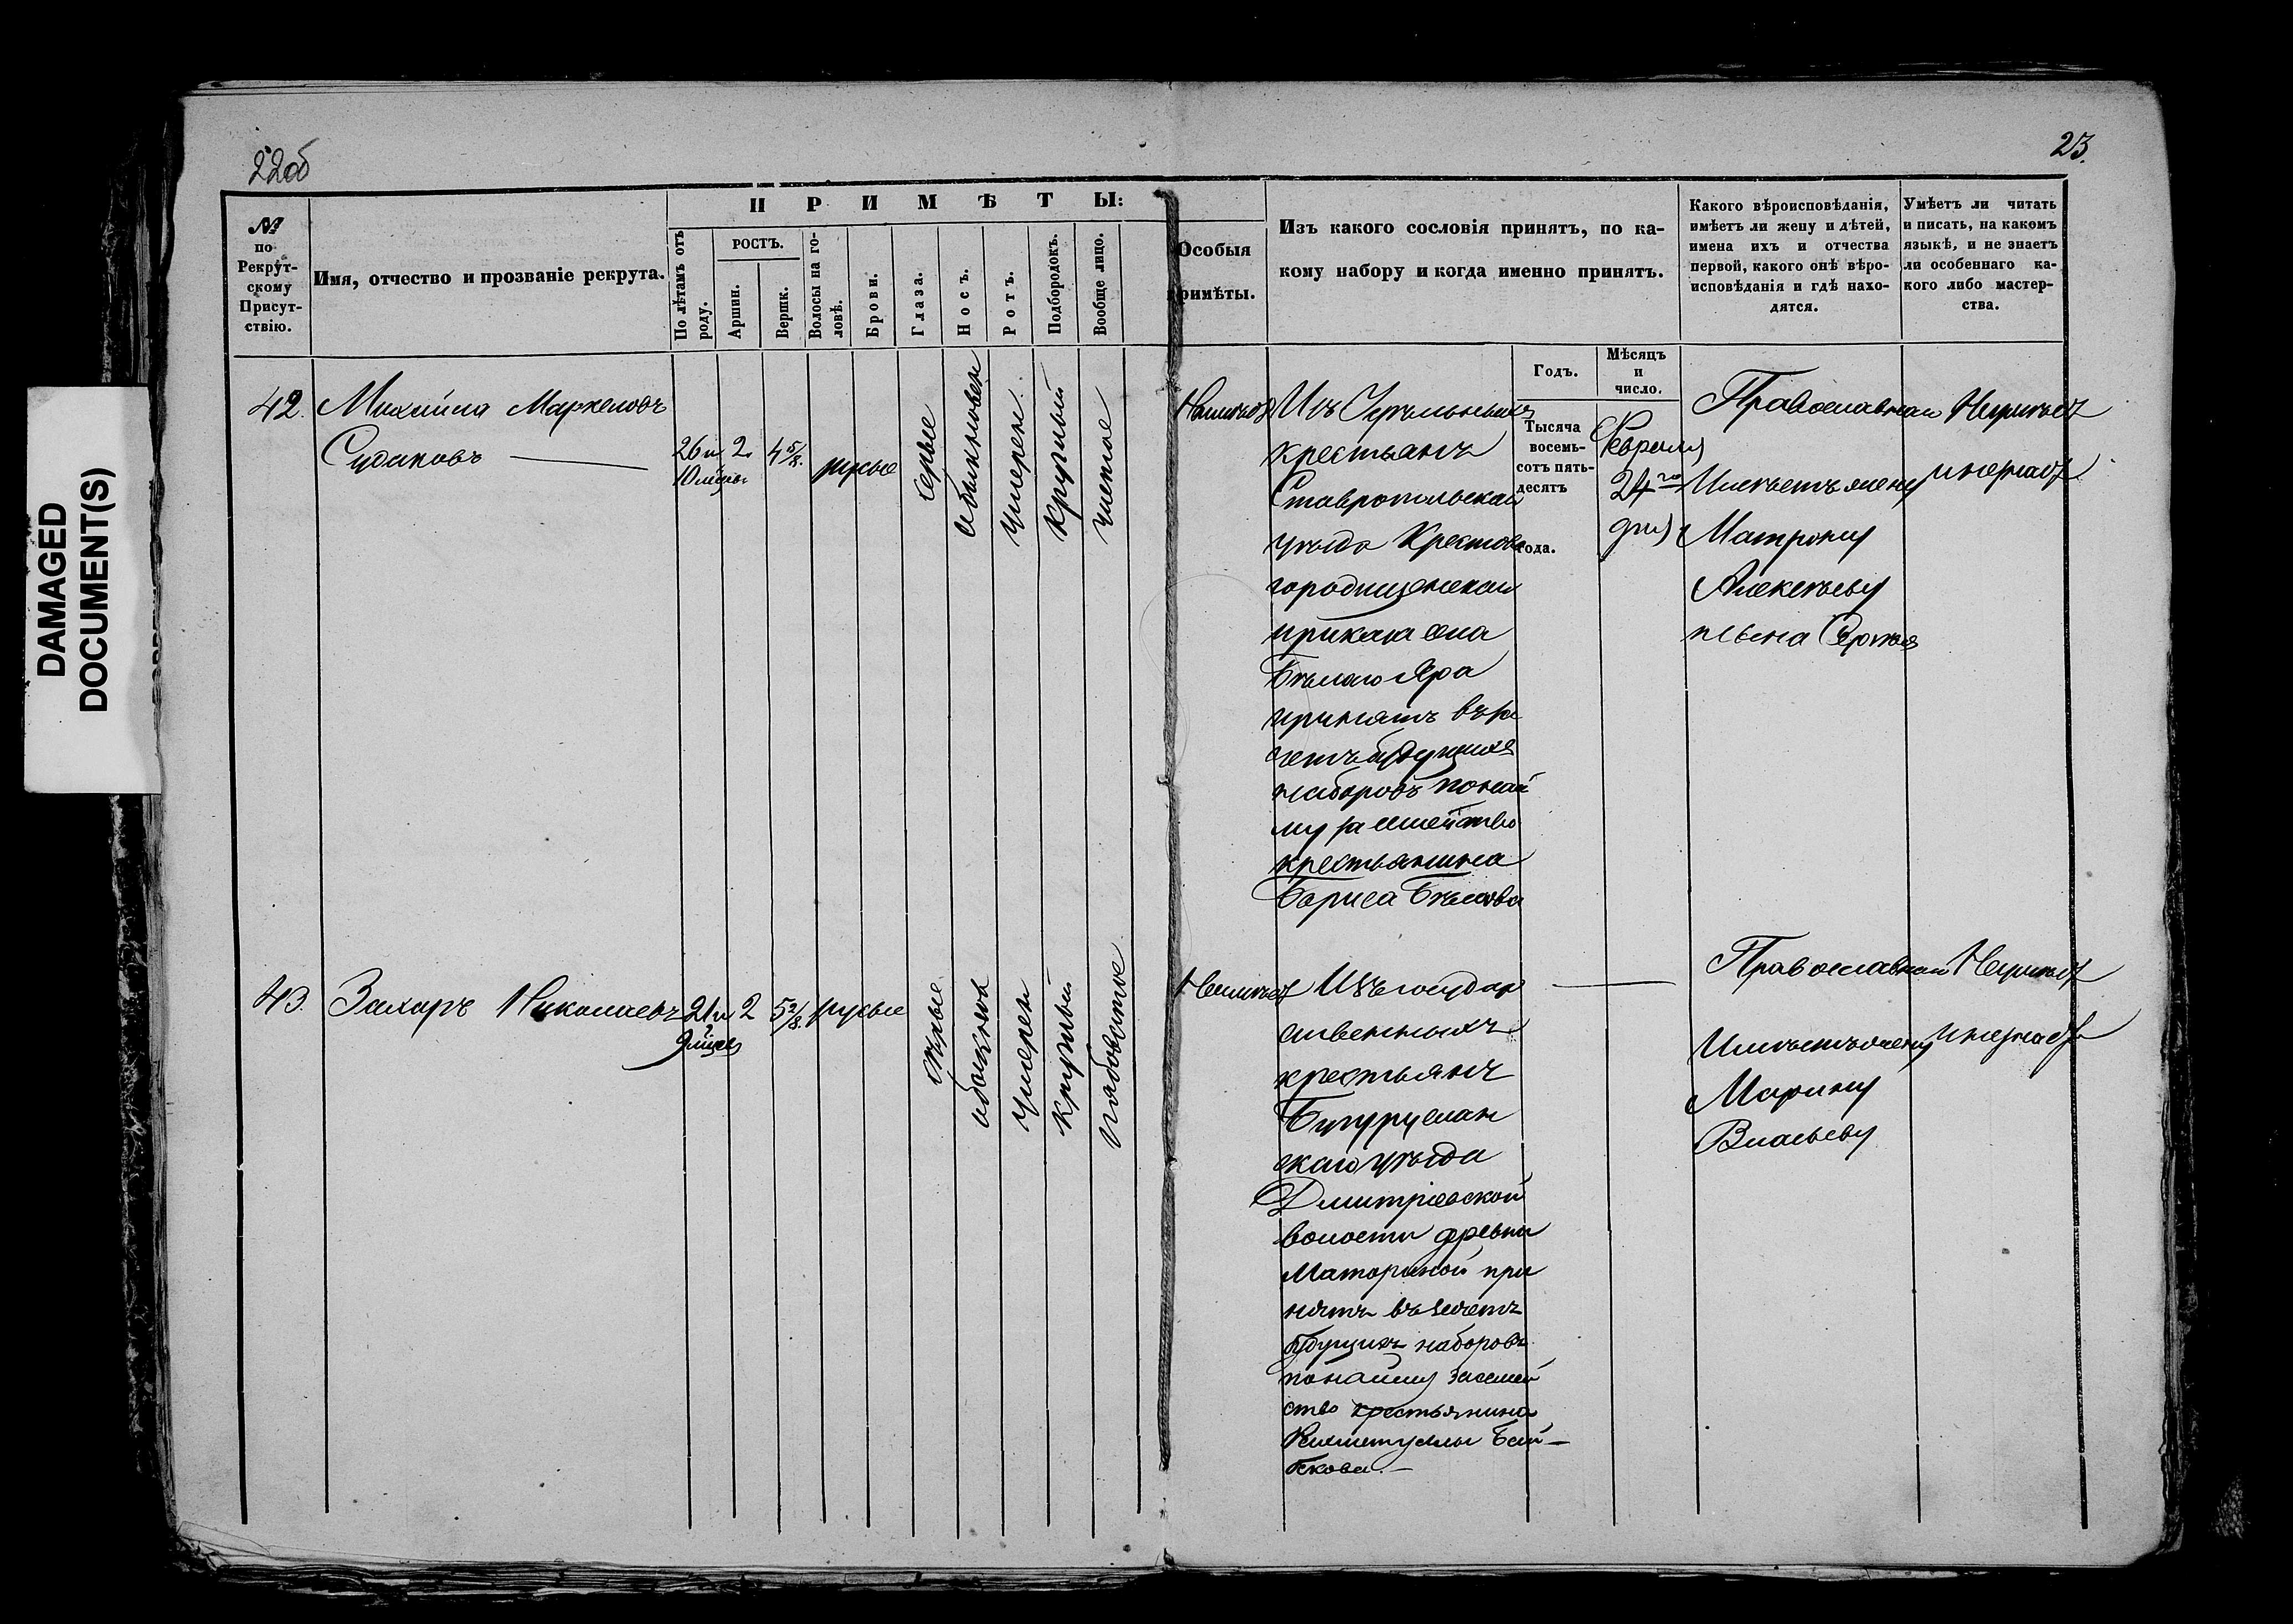 22об
23.
DAMAGED
DOCUMENT(S)
№
по
Рекрут-
скому
Присут-
ствію.
Имя, отчество и прозваніе рекрута.
ПРИМѢТЫ:
По лѣтамъ отъ
роду.
РОСТЪ.
Аршин.
Вершк.
Волосы на го-
ловѣ.
Брови.
Глаза.
Носъ.
Ротъ.
Подбородокъ.
Вообще лицо.
Особыя
примѣты.
Изъ какого сословія принятъ, по ка-
кому набору и когда именно принятъ.
Какого вѣроисповѣданія,
имѣетъ ли жену и дѣтей,
имена ихъ и отчества
первой, какого онѣ вѣро-
исповѣданія и гдѣ нахо-
дятся.
Умѣетъ ли читать
и писать, на какомъ
языкѣ, и не знаетъ
ли особеннаго ка-
кого либо мастер-
ства.
Годъ.
Мѣсяцъ
и
число.
42.
Михайла Маркеловъ
Судаковъ
26 и
10 мѣсяц
2
4 5/8.
русые
серые
обыкновен
умерен.
круглый
чистое
Неимѣетъ
Изъ Удѣльныхъ
крестьянъ
Ставропольскаго
уѣзда Крестово
городищенскаго
приказа села
Бѣлаго Яра
принятъ въ за
четъ будущихъ
наборовъ по най
му за семейство
крестьянина
Бориса Бѣлова
Тысяча
восемь-
сотъ пять-
десятъ
года.
Февраля
24го
дня
Православнаго
Имѣетъ жену
Матрону
Алексѣеву
и сына Сергѣя
Неумѣетъ
и незнаетъ
43.
Захаръ Николаевъ
21 и
9 мѣсяц
2
5 2/8.
русые
сѣрые
обыкнов
умерен
круглый
рябоватое
Неимѣетъ
Изъ государ
ственныхъ
крестьянъ
Бугуруслан
скаго уѣзда
Дмитріевской
волости дрѣвни
Маториной при
нятъ въ зачетъ
будущихъ наборовъ
по найму за семей
ство крестьянина
Бай-
бекова.
Православнаго
Имѣетъ жену
Марину
Власьеву
Неумѣетъ
и незнаетъ